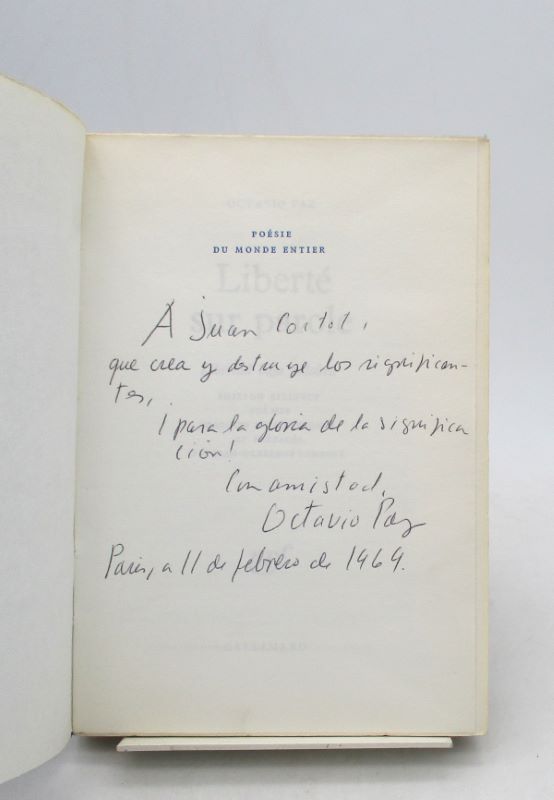 POÉSIE
DU MONDE ENTIER
OCTAVIO PAZ
Liberté
sur parole
A Juan
que crea y destruye los significan-
tes,
¡para la gloria de la significa
ción!
Con amistad,
Octavio Paz
París, a 11 de febrero de 1969.
GALLIMARD